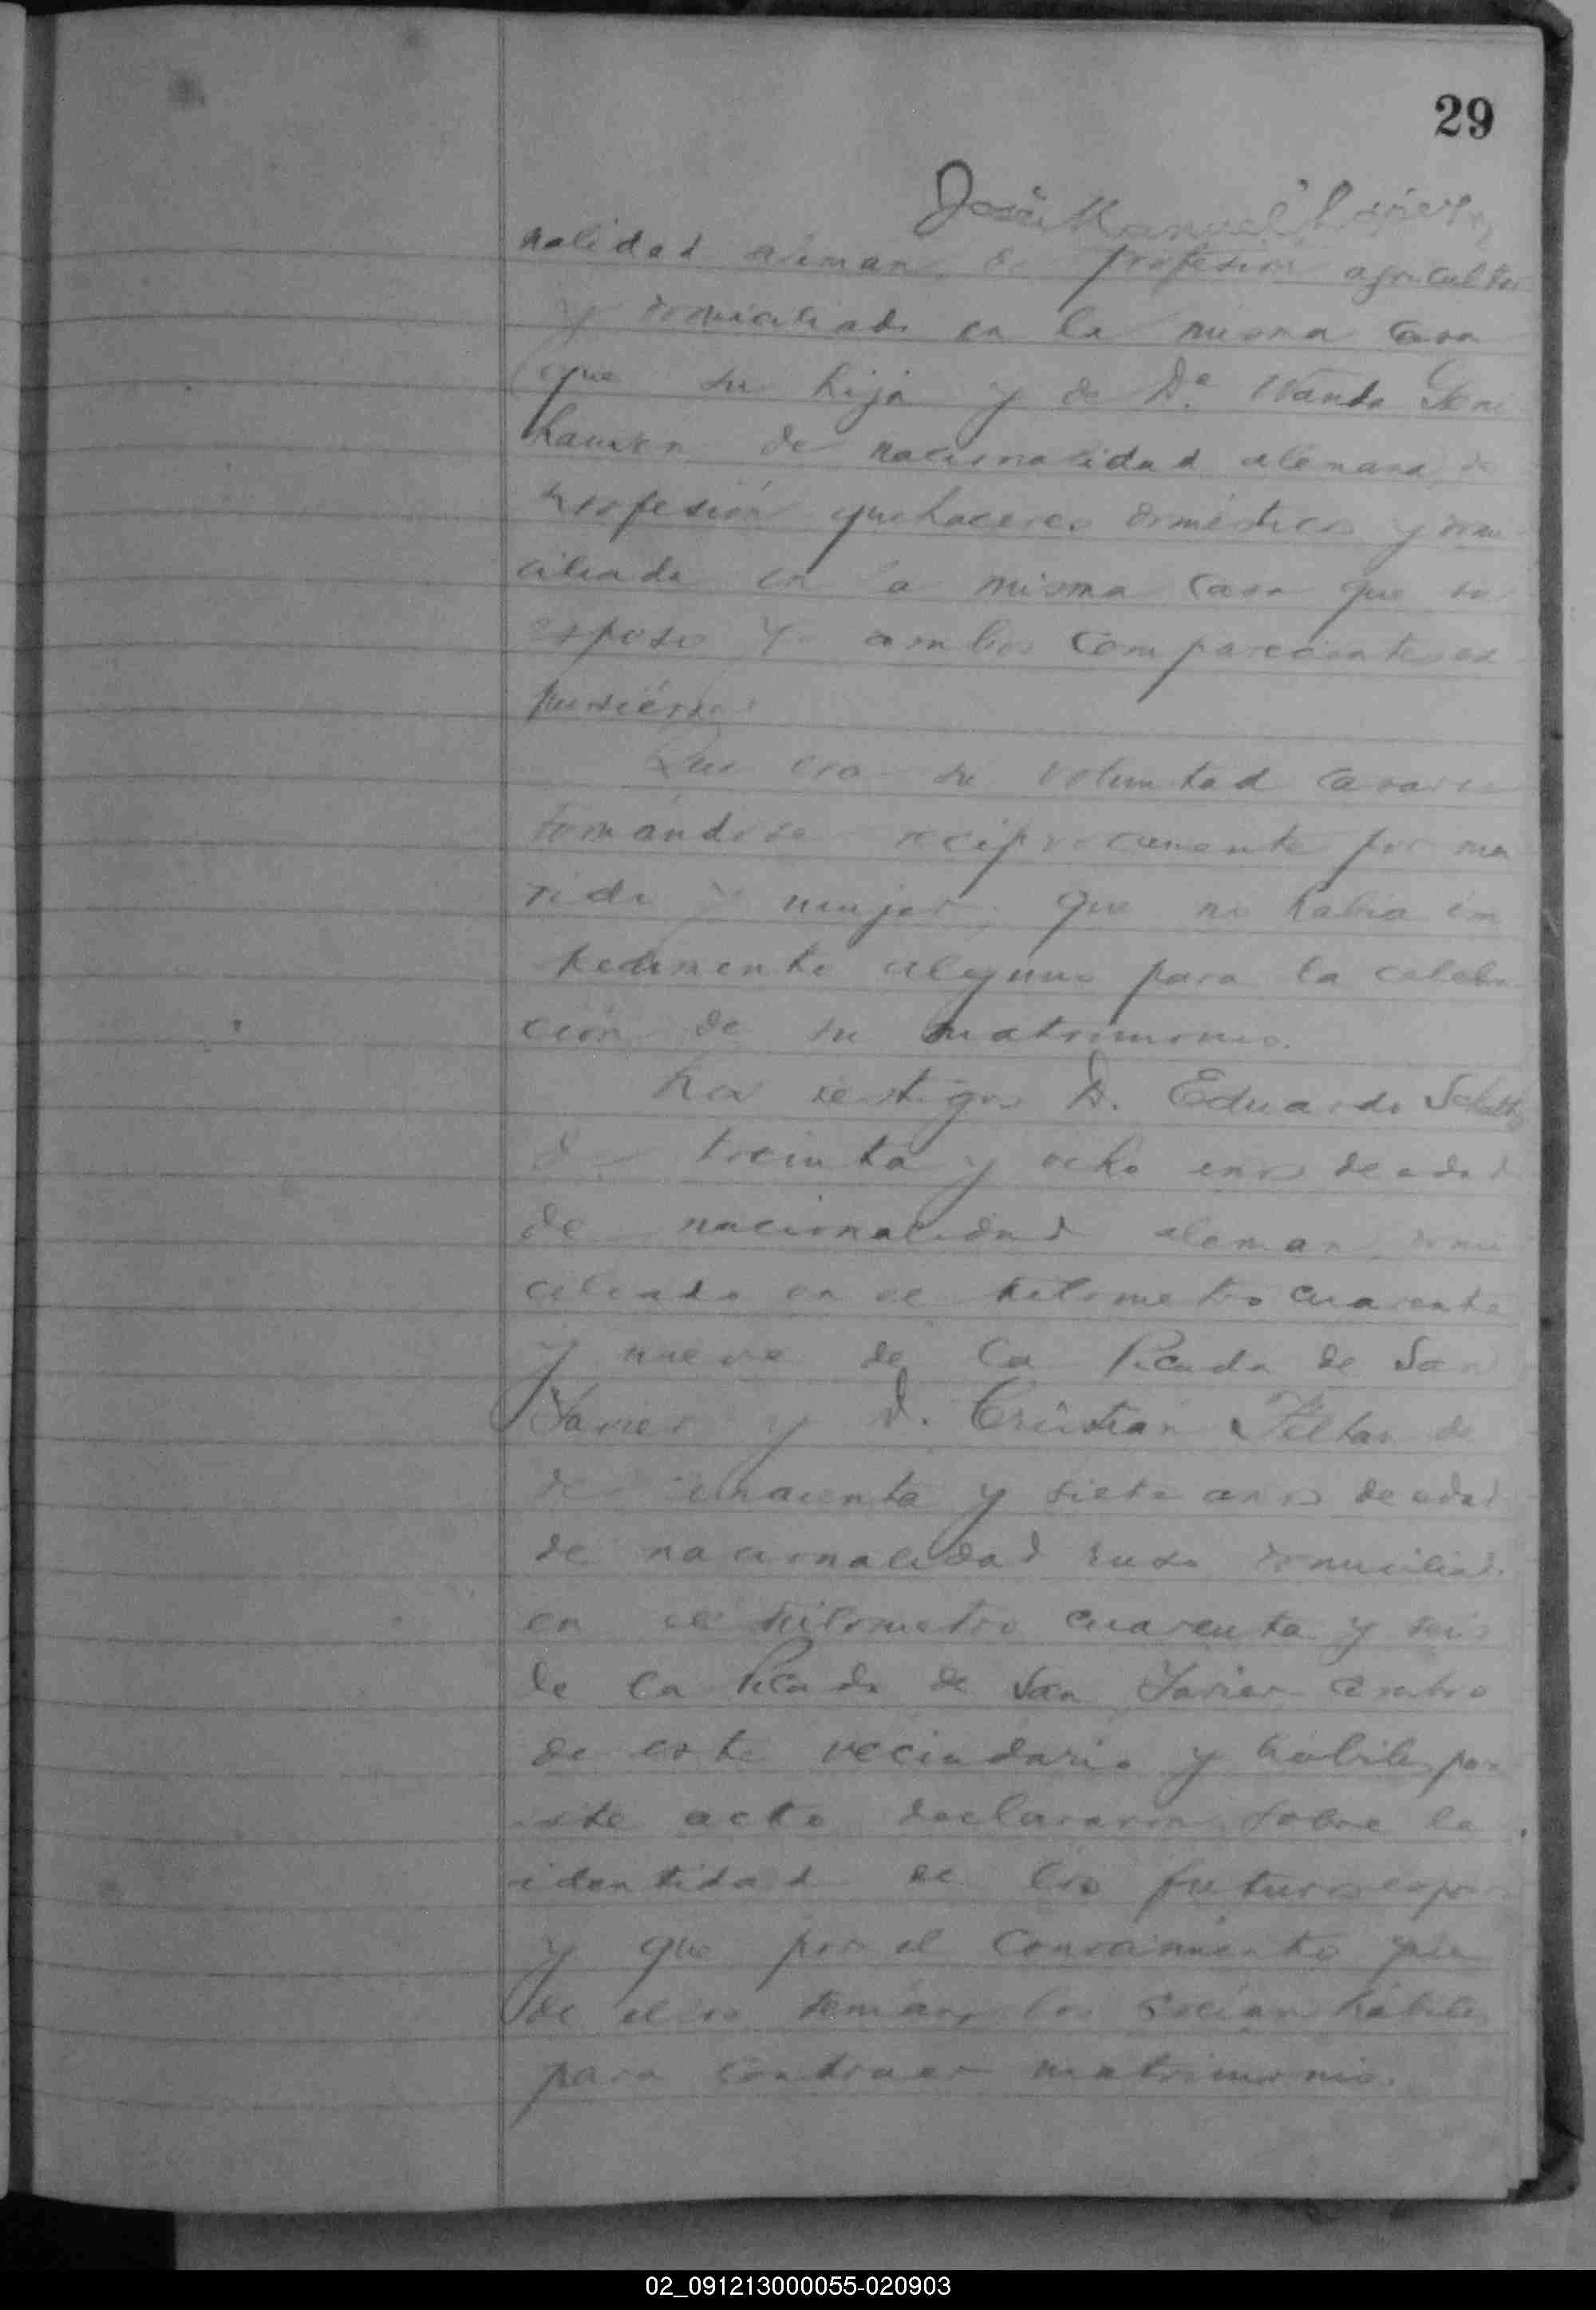 29
José Manuel
nalidad aleman, de profesión agricultor
y domiciliado en la misma casa
que su hija y de Dª. Wanda
hausen de nacionalidad alemana, de
profesión quehaceres domésticos y domi
ciliada en la misma casa que su
esposo. Y ambos comparecientes ex
pusiéron:
Que era su voluntad casarse
tomándose reciprocamente por ma
rido y mujer, que no habia im
pedimento alguno para la celebra
ción de su matrimonio.
Los testigos D. Eduardo
de treinta y ocho años de edad
de nacionalidad aleman domi
ciliado en el kilometro cuarenta
y nueve de la Picada de San
Javier y D. Cristián de
de cincuenta y siete años de edad
de nacionalidad ruso domiciliado
en el kilometro cuarenta y seis
de la Picada de San Javier ambos
de este vecindario y hábiles para
este acto declararon sobre la
identidad de los futuros esposos
y que por el conocimiento que
de ellos tenian, los creian hábiles
para contraer matrimonio.
02_091213000055-020903